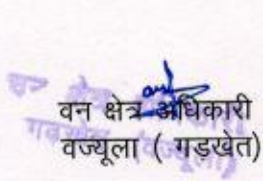 वन क्षेत्र अधिकारी
वज्यूला ( गड़खेत)